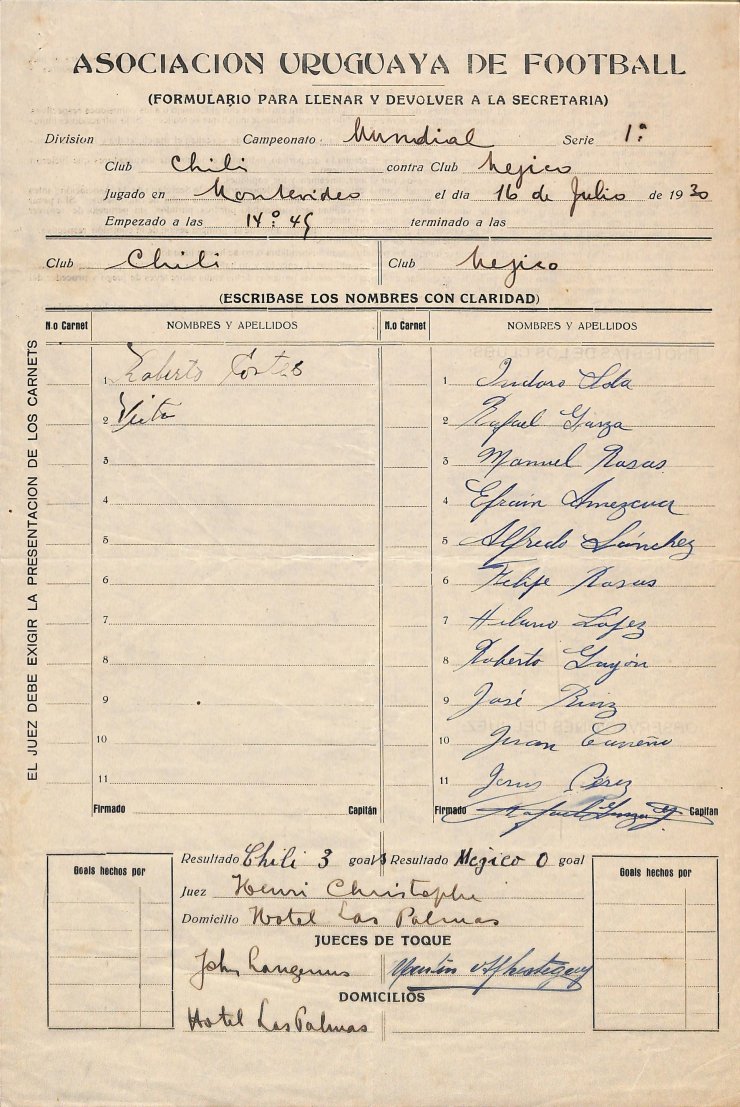 ASOCIACION URUGUAYA DE FOOTBALL
(FORMULARIO PARA LLENAR Y DEVOLVER A LA SECRETARIA)
Division Campeonato Mundial Serie 1ª
Club Chili contra Club Mejico
Jugado en Montevideo el dia 16 de Julio de 1930
Empezado a las 14º 45 terminado a las
Club Chili Club Mejico
(ESCRIBASE LOS NOMBRES CON CLARIDAD)
N.o Carnet NOMBRES Y APELLIDOS N.o Carnet NOMBRES Y APELLIDOS
EL JUEZ DEBE EXIGIR LA PRESENTACION DE LOS CARNETS
1 Roberto Cortes 1 Isidoro Sota
2 2 Rafael Garza
3 3 Manuel Rosas
4 4 Efrain Amezcua
5 5 Alfredo Sánchez
6 6 Felipe Rosas
7 7 Hilario López
8 8 Roberto Gayón
9 9 José Ruiz
10 10 Juan Carreño
11 11 Jesus Pérez
Firmado Capitán Firmado Rafael Garza Capitan
Resultado Chili 3 goals Resultado Mejico 0 goal
Goals hechos por Goals hechos por
Juez Henri Christophe
Domicilio Hotel Las Palmas
JUECES DE TOQUE
John Langenus Martin
DOMICILIOS
Hotel Las Palmas